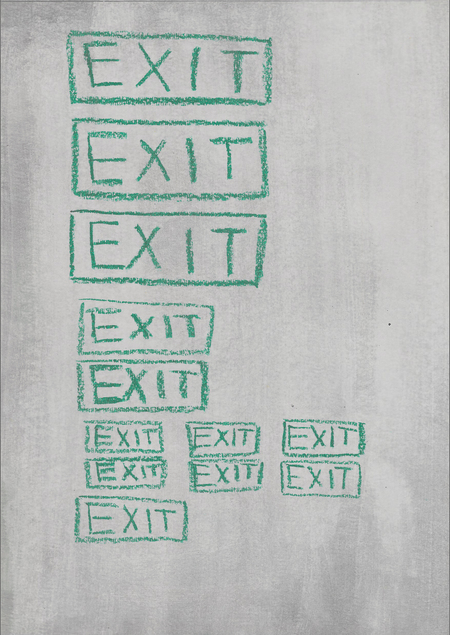 EXIT
EXIT
EXIT
EXIT
EXIT
EXIT EXIT EXIT
EXIT EXIT EXIT
EXIT